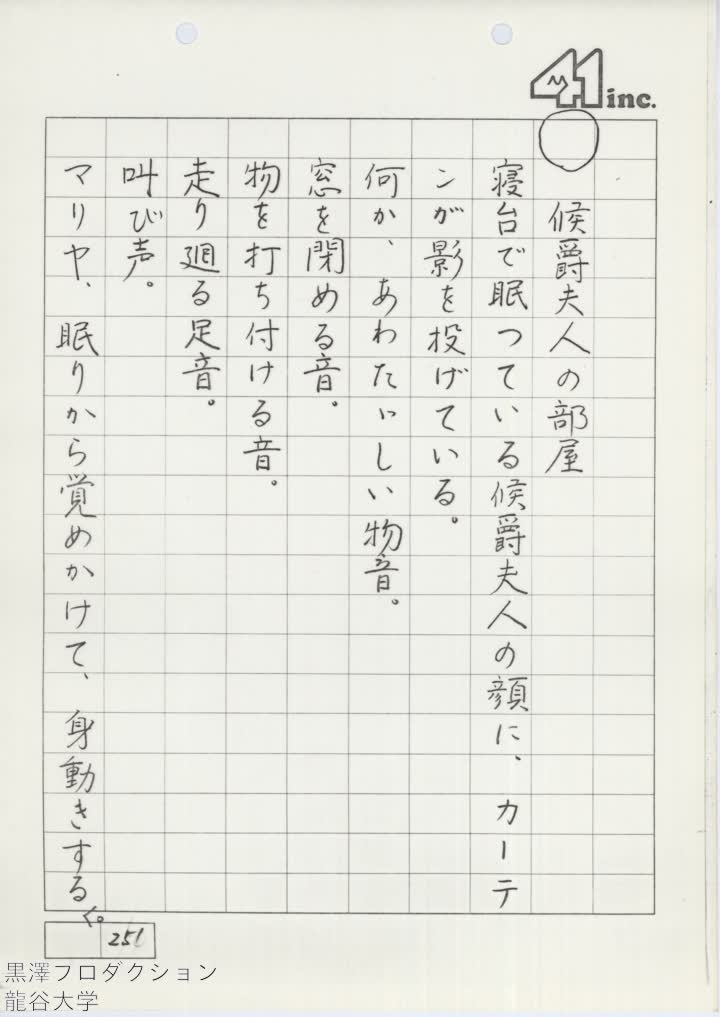 41 inc.
○
候爵夫人の部屋
寝台で眠っている候爵夫人の顔に、カーテ
ンが影を投げている。
何か、あわたゞしい物音。
窓を閉める音。
物を打ち付ける音。
走り廻る足音。
叫び声。
マリヤ、眠りから覚めかけて、身動きする。
251
黒澤プロダクション
龍谷大学